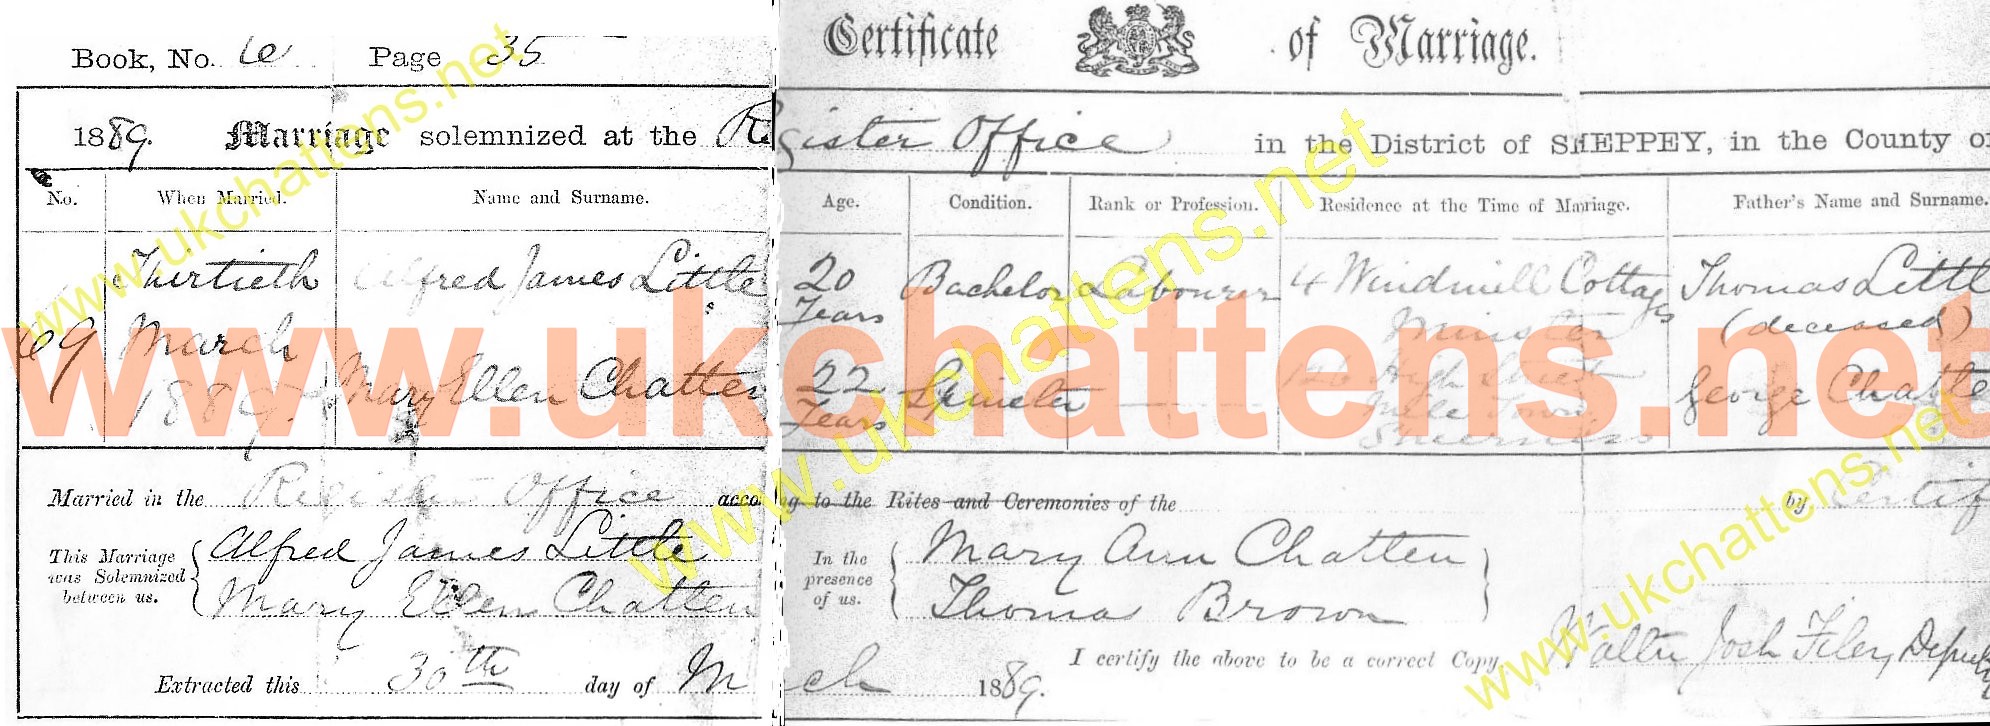 Book, No. 6 Page 35
Certificate of Marriage.
1889. Marriage solemnized at the Register Office in the District of SHEPPEY, in the County of
No. When Married. Name and Surname. Age. Condition. Rank or Profession. Residence at the Time of Marriage. Father's Name and Surname.
69
Thirtieth March 1889
Alfred James Little 20 Years Bachelor Labourer 4 Windmill Cottages Minster Thomas Littl (deceased)
Mary Ellen Chatten 22 Years Spinster — High Street Mile Town Sheerness George Chatte
Married in the Register Office acco g to the Rites and Ceremonies of the by Certif
This Marriage was Solemnized between us.
Alfred James Little
Mary Ellen Chatten
In the presence of us.
Mary Ann Chatten
Thomas Brown
Extracted this 30th day of March 1889. I certify the above to be a correct Copy, Walter Josh Filey Deputy
www.ukchattens.net
www.ukchattens.net
www.ukchattens.net
www.ukchattens.net
www.ukchattens.net